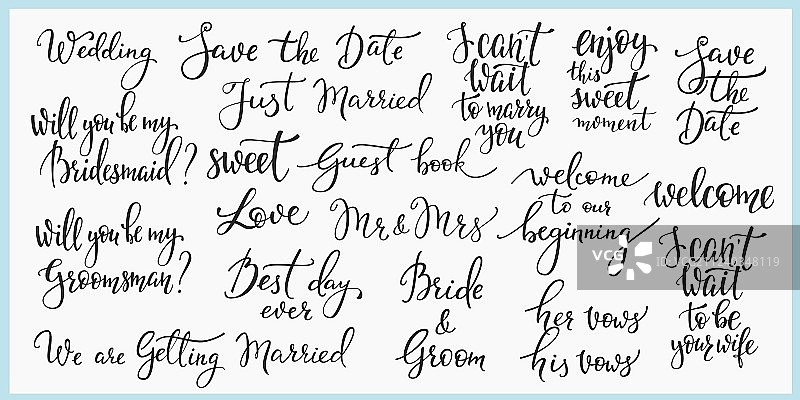 Wedding
Save the Date
I can't
wait
to marry
you
enjoy
this
sweet
moment
Save
the
Date
Just Married
will you be my
Bridesmaid?
sweet
Guest book
welcome
to our
beginning
welcome
Love
Mr & Mrs
will you be my
Groomsman?
Best day
ever
Bride
&
Groom
her vows
his vows
I can't
wait
to be
your wife
We are Getting Married
VCG